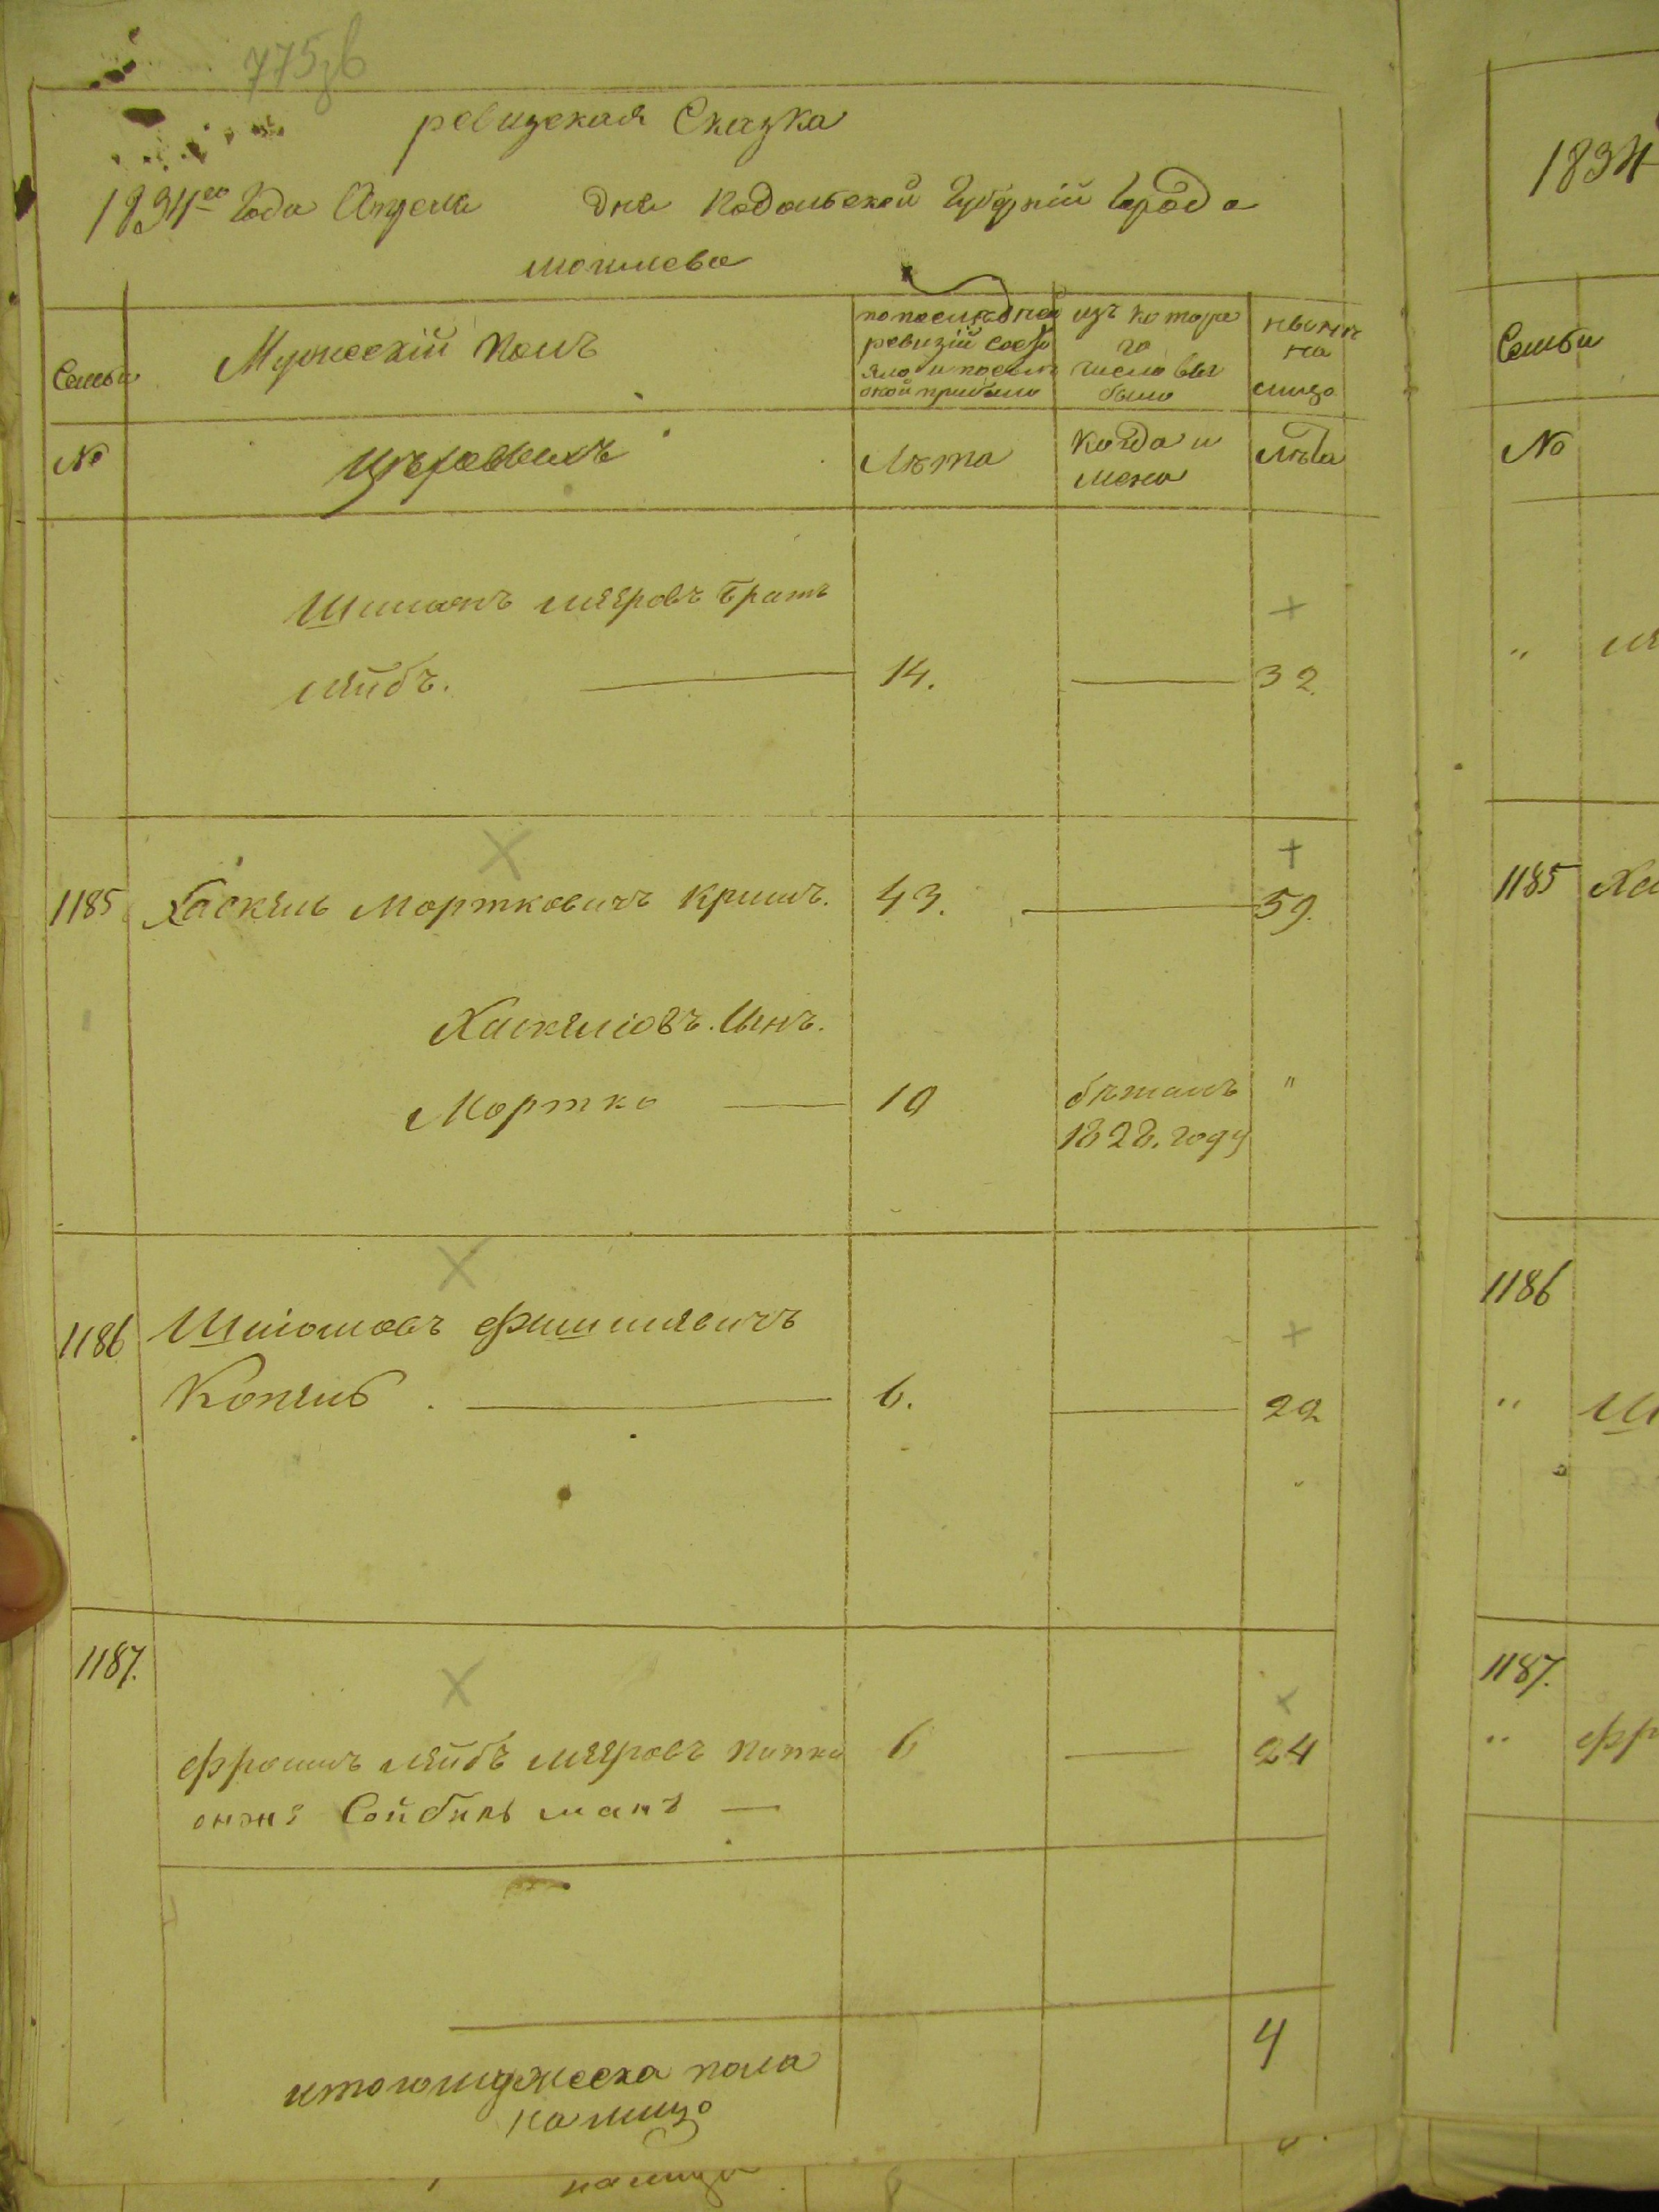 775об
ревизская Сказка
1834го Года Апреля дня Подольской Губерніи Города
могилева
Семьи
Мужескій полъ
по последней ревизій состояло и после оной прибыло
изъ которого число выбыло
ныне на лицо
№
Евреевъ
Лѣта
когда и
Лѣта
Шимонъ меяровъ братъ
лейбъ. 14. 32.
1185 Хаскель Мортковичъ криш. 43. 59.
Хаскеліовъ. Сынъ.
Мортко 10 бежалъ "
1828. году
1186 Шліомовъ Фишилевичъ
Копель. 6. 22
1187.
Фроимъ лейбъ меяровъ
онже 6 24
итого мужеска пола 4
на лицо
на лицо
1834
Семьи
№
"
1185 Ха
1186
" Ш
1187.
" Фр